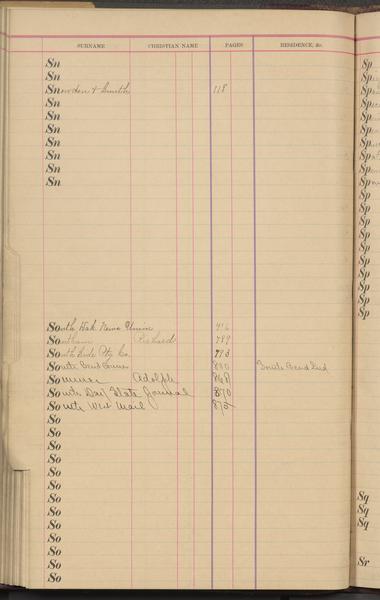 SURNAME CHRISTIAN NAME PAGES RESIDENCE, &c.
Sn
Sn
Snowden & Smith 118
Sn
Sn
Sn
Sn
Sn
Sn
Sn
South Dak News Union 416
Southam Richard 789
South Side Ptg Co. 793
South Bend 800 South Bend Ind
Sommer Adolph 868
South Dak State Journal 870
South West Mail 872
So
So
So
So
So
So
So
So
So
So
So
So
So
Sp
Sp
Sp
Sp
Sp
Sp
Sp
Sp
Sp
Sp
Sp
Sp
Sp
Sp
Sp
Sp
Sp
Sp
Sp
Sp
Sq
Sq
Sq
Sr